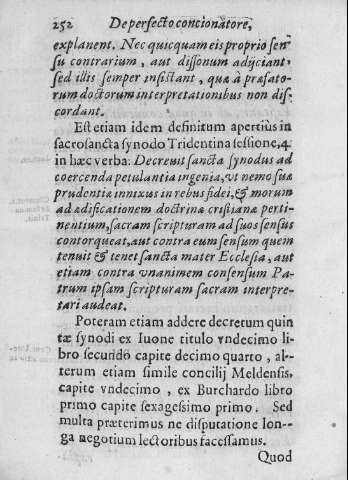 252 De perfecto concionatore,
explanent. Nec quicquam eis proprio sen
su contrarium, aut dissonum adijciant,
sed illis semper insistant, quæ à præfato-
rum doctorum interpretationibus non dis-
cordant.
Est etiam idem definitum apertius in
sacrosancta synodo Tridentina sessione, 4.
in hæc verba: Decreuit sancta synodus ad
coercenda petulantia ingenia, vt nemo suæ
prudentiæ innixus in rebus fidei, & morum
ad ædificationem doctrinæ cristianæ perti-
nentium, sacram scripturam ad suos sensus
contorqueat, aut contra eum sensum quem
tenuit & tenet sancta mater Ecclesia, aut
etiam contra vnanimem consensum Pa-
trum ipsam scripturam sacram interpre-
tari audeat.
Poteram etiam addere decretum quin
tæ synodi ex Iuone titulo vndecimo li-
bro secundo capite decimo quarto, al-
terum etiam simile concilij Meldensis,
capite vndecimo, ex Burchardo libro
primo capite sexagessimo primo. Sed
multa præterimus ne disputatione lon-
ga negotium lectoribus facessamus.
Quod